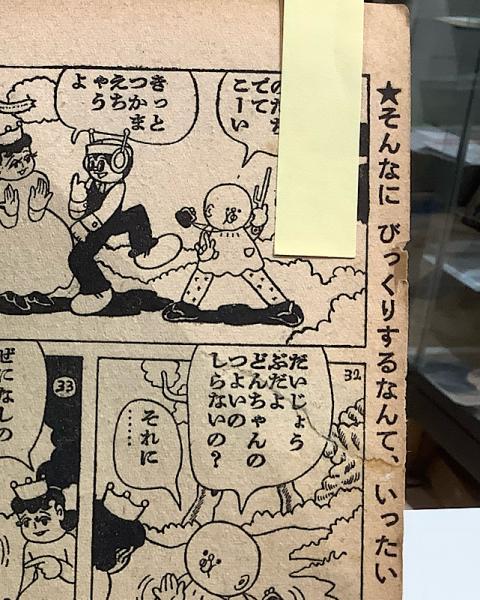 ★そんなに びっくりするなんて、いったい
でて
こーい
きっと
つかま
えち
ゃう
よ
32
だいじょう
ぶだよ
どんちゃんの
つよいの
しらないの?
それに
……
33
ぜになしの